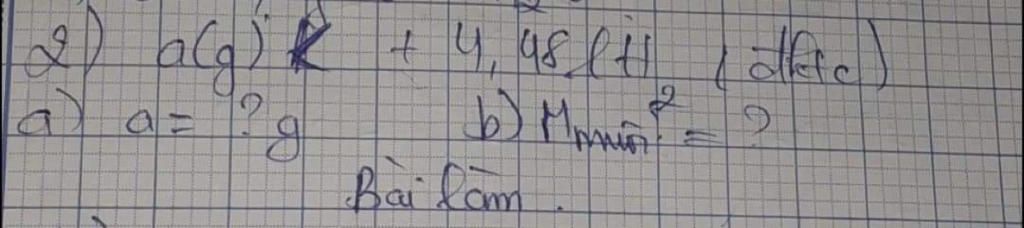 2) a(g) K + 4,48 lít H2 (đktc)
a) a = ? g b) Mmuối = ?
Bài làm.